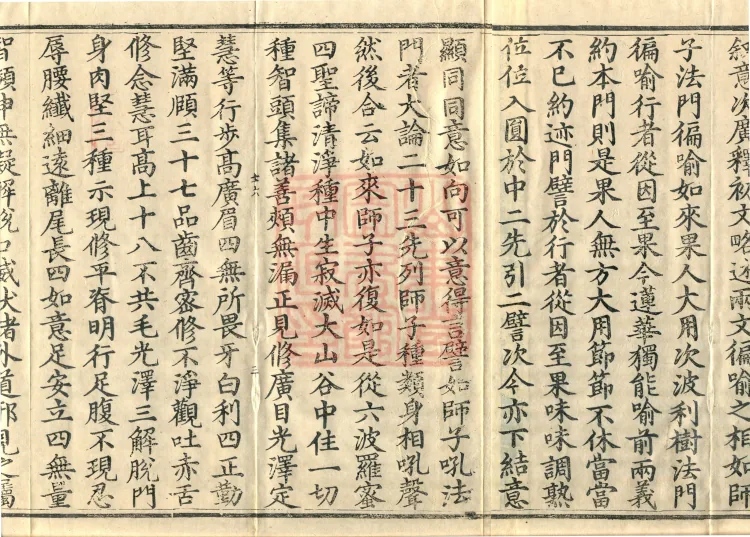 敍意次廣釋初文略述兩文徧喻之相如師
子法門徧喻如來果人大用次波利樹法門
徧喻行者從因至果今蓮華獨能喻前兩義
約本門則是果人無方大用節節不休當當
不已約迹門譬於行者從因至果味味調熟
位位入圓於中二先引二譬次今亦下結意
顯同同意如向可以意得言譬如師子吼法
門者大論二十三先列師子種類身相吼聲
然後合云如來師子亦復如是從六波羅蜜
四聖諦清淨種中生寂滅大山谷中住一切
種智頭集諸善頰無漏正見修廣目光澤定
慧等行步高廣眉四無所畏牙白利四正勤
堅滿頤三十七品齒齊密修不淨觀吐赤舌
修念慧耳高上十八不共毛光澤三解脫門
身肉堅三種示現修平脊明行足腹不現忍
辱腰纖細遠離尾長四如意足安立四無量
智頸伸無礙解脫口滅犬諸外道邪見之屬
二